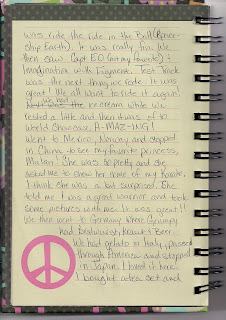 was ride the ride in the Ball (Space-
ship Earth). It was really fun. We
then saw Capt EO (not my favorite) &
Imagination with Figment. Test Track
was the next thing we rode. It was
great! We all want to ride it again!
Next was the ice cream while we
we had
rested a little and then it was off to
World Showcase. A-MAZ-ING!
Went to Mexico, Norway and stopped
in China to see my favorite princess,
Mulan! She was so pretty and she
asked me to show her some of my Karate.
I think she was a bit surprised. She
told me I was a great warrior and took
some pictures with me. It was great!!
We then went to Germany where Grumpy
had Bratwurst, kraut & Beer.
We had gelato in Italy, passed
through America and stopped
in Japan. I loved it here!
I bought a tea set and